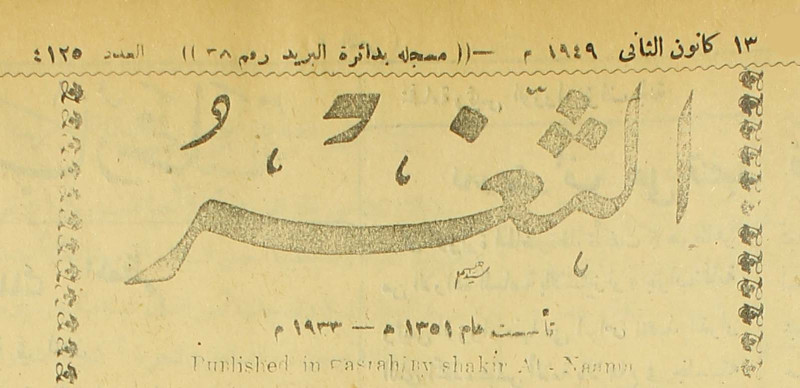 ١٣ كانون الثاني ١٩٤٩ م — (( مسجله بدائرة البريد رقم ٣٨ )) العدد ٤١٢٥
الثغر
تأسست عام ١٣٥١ هـ — ١٩٣٣ م
Published in Basrah by shakir Al - Naama